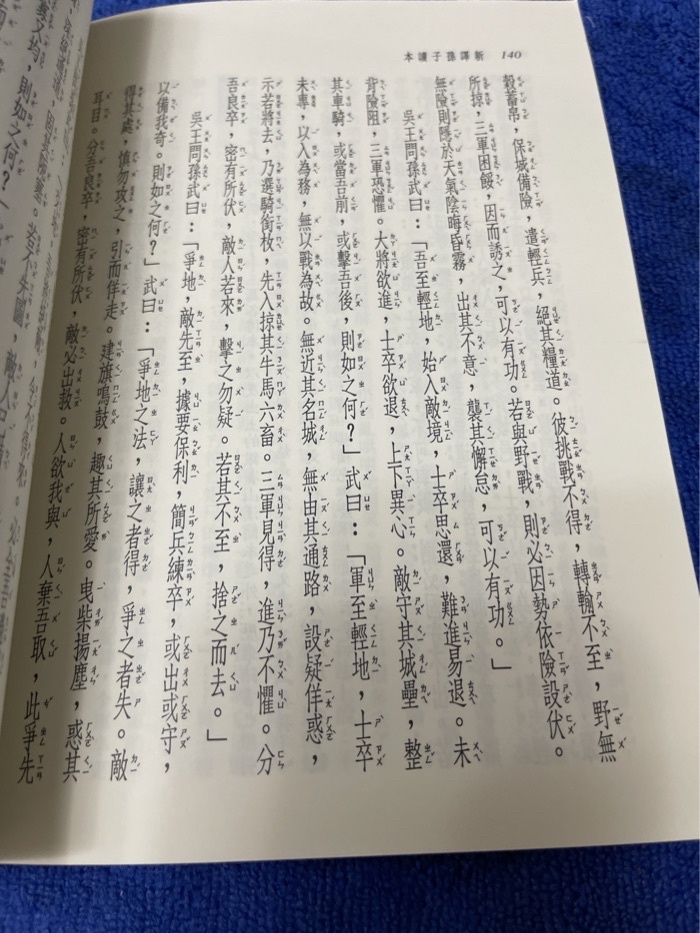 140 新譯孫子讀本
穀蓄帛，保城備險，遣輕兵，絕其糧道。彼挑戰不得，轉輸不至，野無
所掠，三軍困餒，因而誘之，可以有功。若與野戰，則必因勢依險設伏。
無險則隱於天氣陰晦昏霧，出其不意，襲其懈怠，可以有功。」
吳王問孫武曰：「吾至輕地，始入敵境，士卒思還，難進易退。未
背險阻，三軍恐懼。大將欲進，士卒欲退，上下異心。敵守其城壘，整
其車騎，或當吾前，或擊吾後，則如之何？」武曰：「軍至輕地，士卒
未專，以入為務，無以戰為故。無近其名城，無由其通路，設疑佯惑，
示若將去，乃選騎銜枚，先入掠其牛馬六畜。三軍見得，進乃不懼。分
吾良卒，密有所伏，敵人若來，擊之勿疑。若其不至，捨之而去。」
吳王問孫武曰：「爭地，敵先至，據要保利，簡兵練卒，或出或守，
以備我奇。則如之何？」武曰：「爭地之法，讓之者得，爭之者失。敵
得其處，慎勿攻之，引而佯走。建旗鳴鼓，趣其所愛。曳柴揚塵，惑其
耳目。分吾良卒，密有所伏，敵必出救。人欲我與，人棄吾取，此爭先